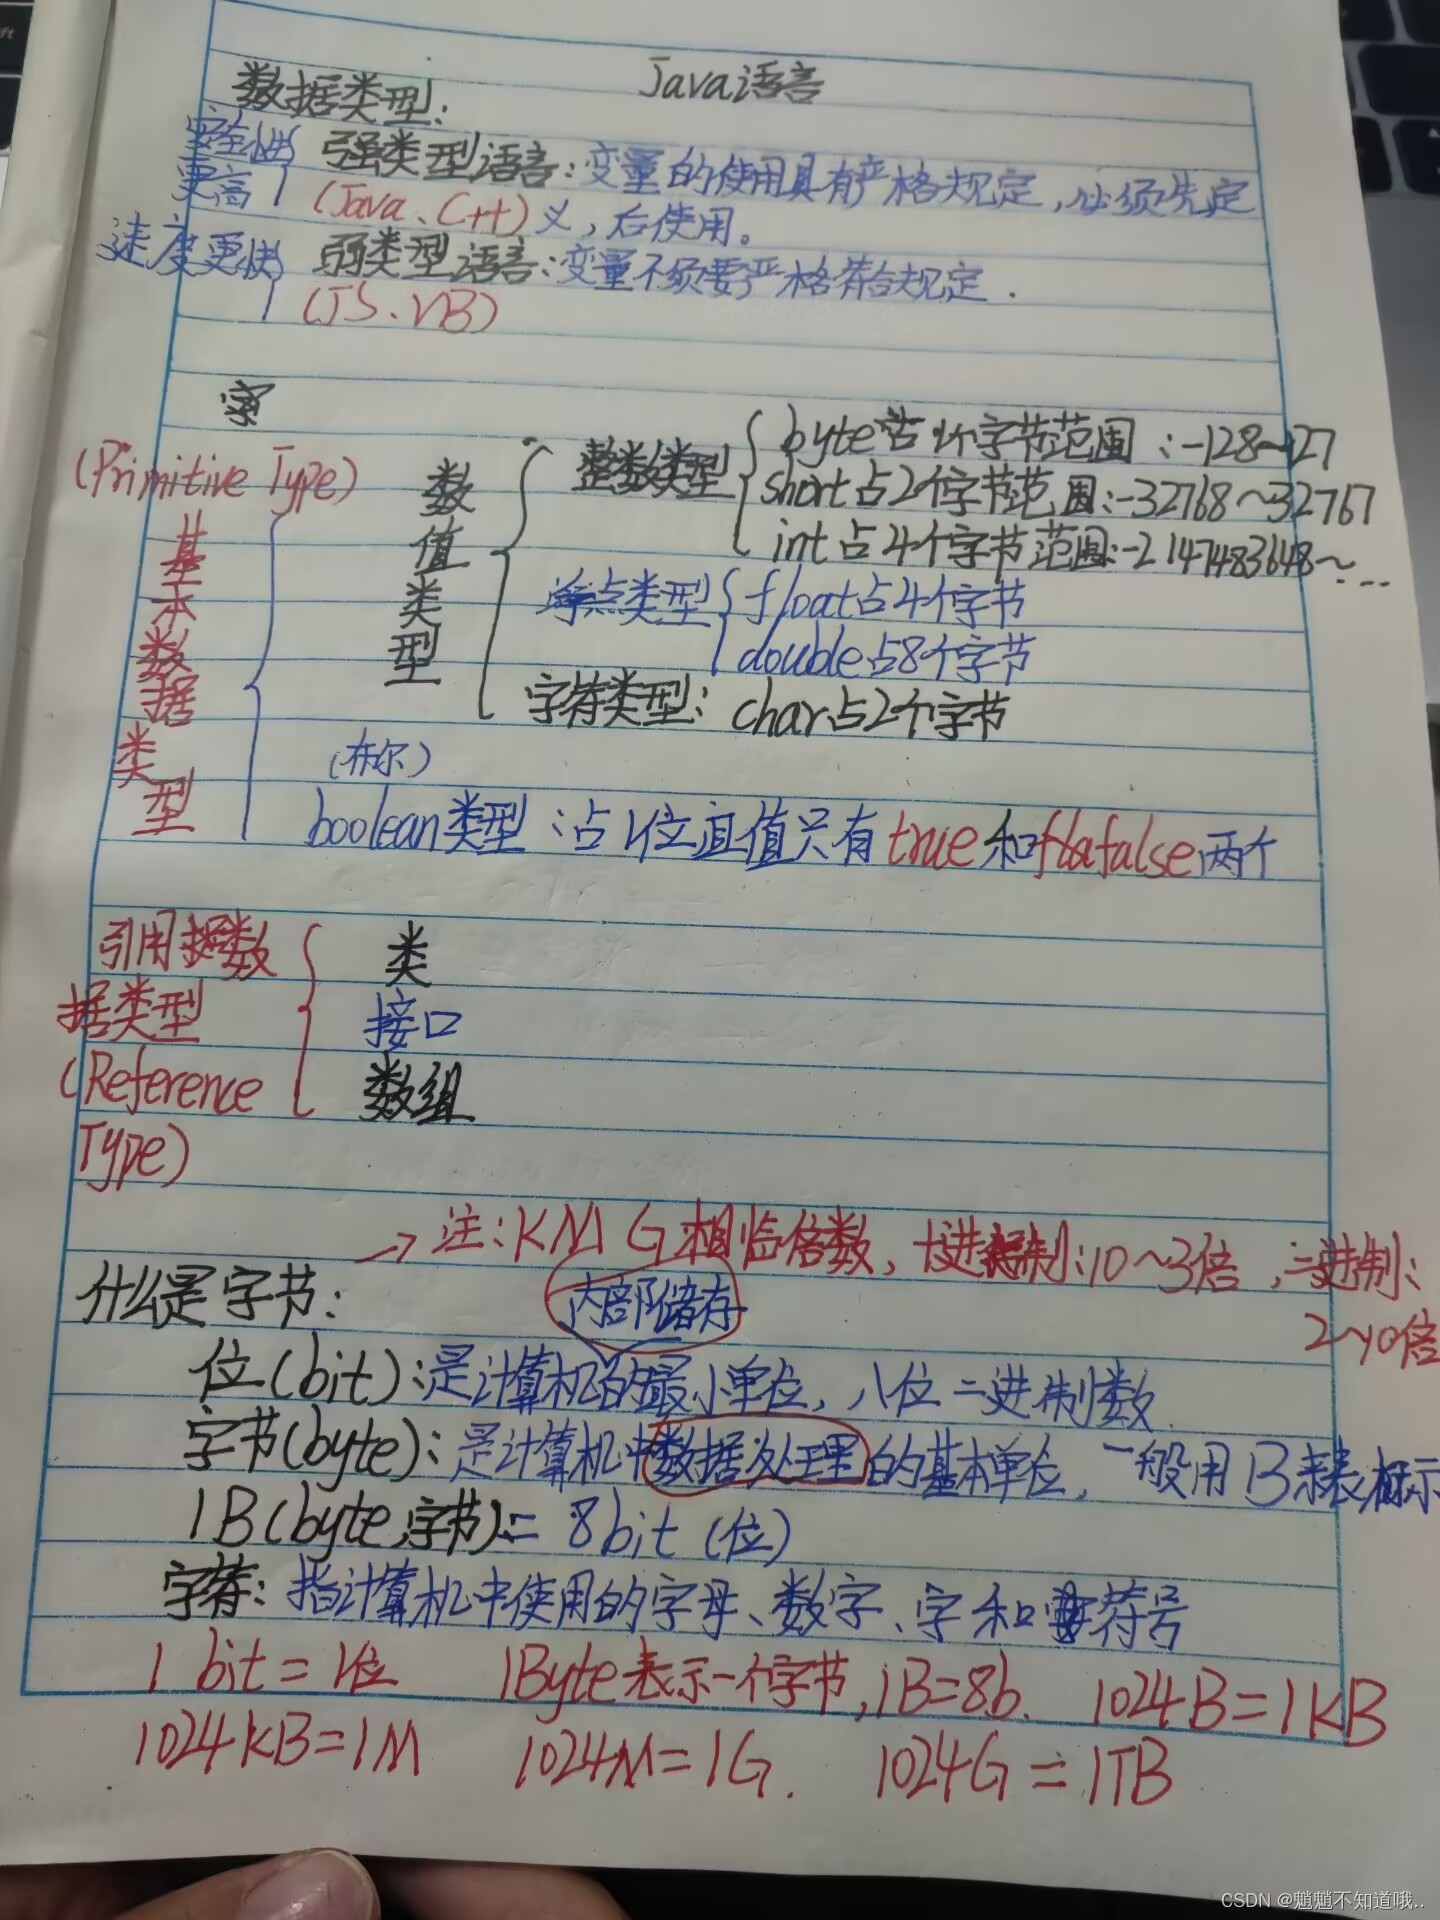 Java语言
数据类型：
安全性更高 { 强类型语言：变量的使用具有严格规定，必须先定
(Java、C++) 义，后使用。
速度更快 { 弱类型语言：变量不须要严格符合规定．
(JS、VB)
(Primitive Type)
基本数据类型
数值类型
整数类型
byte占1个字节范围：-128~127
short占2个字节范围：-32768~32767
int占4个字节范围：-2147483648~...
浮点类型
float占4个字节
double占8个字节
字符类型：char占2个字节
(布尔)
boolean类型：占1位且值只有true和false两个
引用数
据类型
(Reference
Type)
类
接口
数组
→注：K M G相临倍数，十进制：10~3倍，二进制：
2~10倍
什么是字节：
内部储存
位(bit)：是计算机的最小单位，八位二进制数
字节(byte)：是计算机中数据处理的基本单位，一般用B来表示
1B(byte,字节)= 8bit (位)
字符：指计算机中使用的字母、数字、字和符号
1 bit = 1位 1Byte表示一个字节，1B=8b. 1024B=1KB
1024KB=1M 1024M=1G. 1024G=1TB
CSDN @魈魈不知道哦..